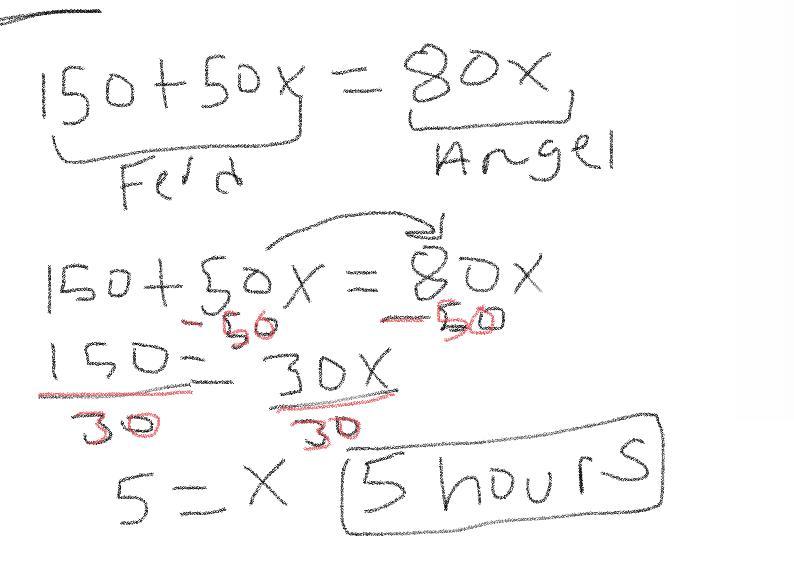 150+50x = 80x
Feld Angel
150+50x = 80x
- 50 - 50
150 = 30x
30 30
5 = x 5 hours